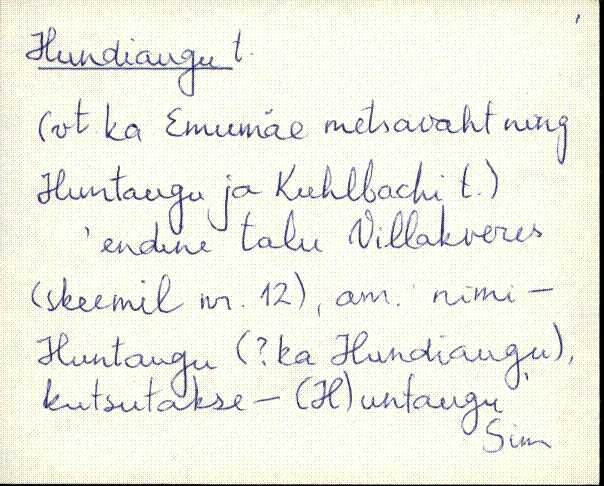 Hundiaugu t.
(vt ka Emumäe metsavaht ning
Huntaugu ja Kuhlbachi t.)
'endine talu Villakveres
(skeemil nr. 12), am. nimi –
Huntaugu (?ka Hundiaugu),
kutsutakse – (H)untaugu'
Sim